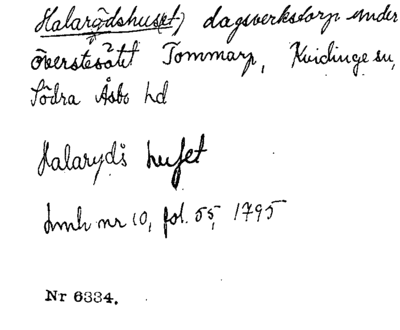 Halarödshus(et) dagsverkstorp under
överstesätet Tommarp, Kvidinge sn,
Södra Åsbo hd
Halaryds huset
Lmh nr 10, fol. 55, 1795
Nr 6334.